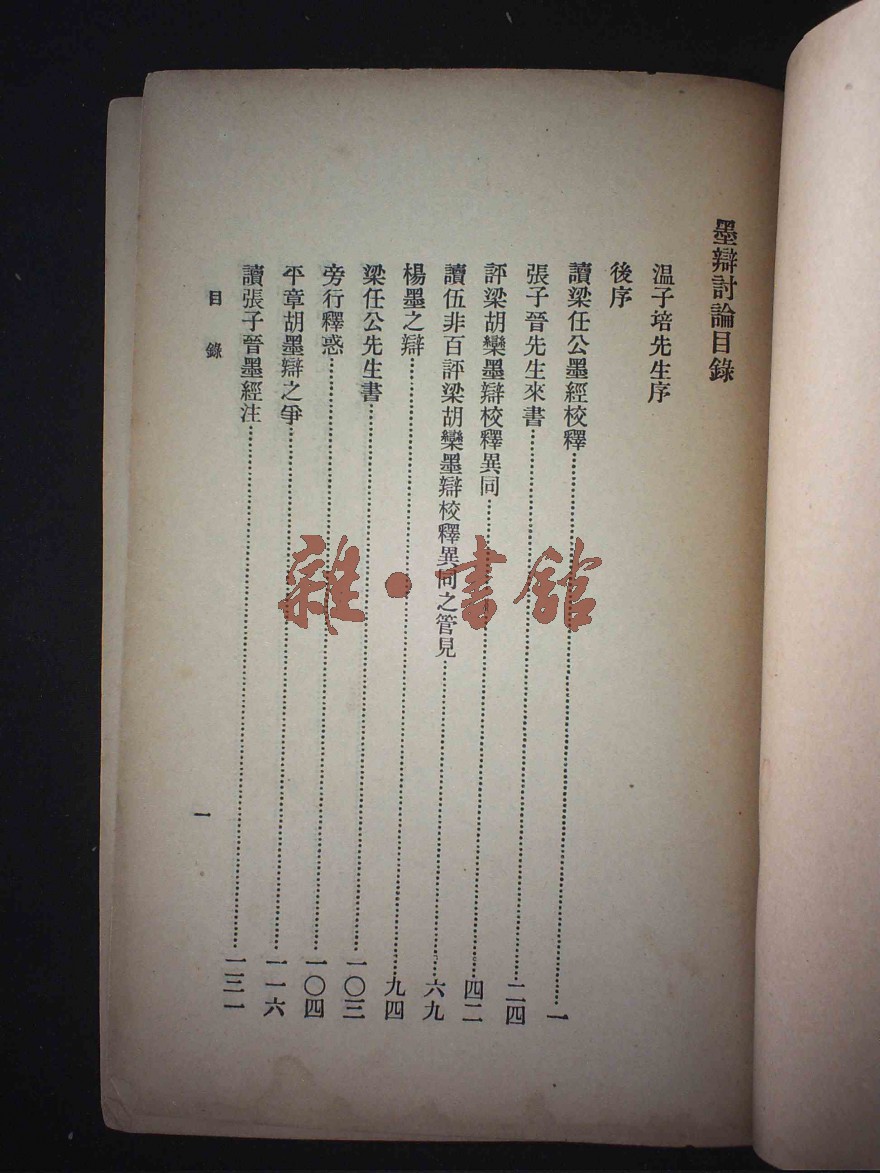 墨辯討論目錄
温子培先生序
後序
讀梁任公墨經校釋……一
張子晉先生來書……二四
評梁胡欒墨辯校釋異同……四二
讀伍非百評梁胡欒墨辯校釋異同之管見……六九
楊墨之辯……九四
梁任公先生書……一〇三
旁行釋惑……一〇四
平章胡墨辯之爭……一一六
讀張子晉墨經注……一三一
目錄
一
雜·書館